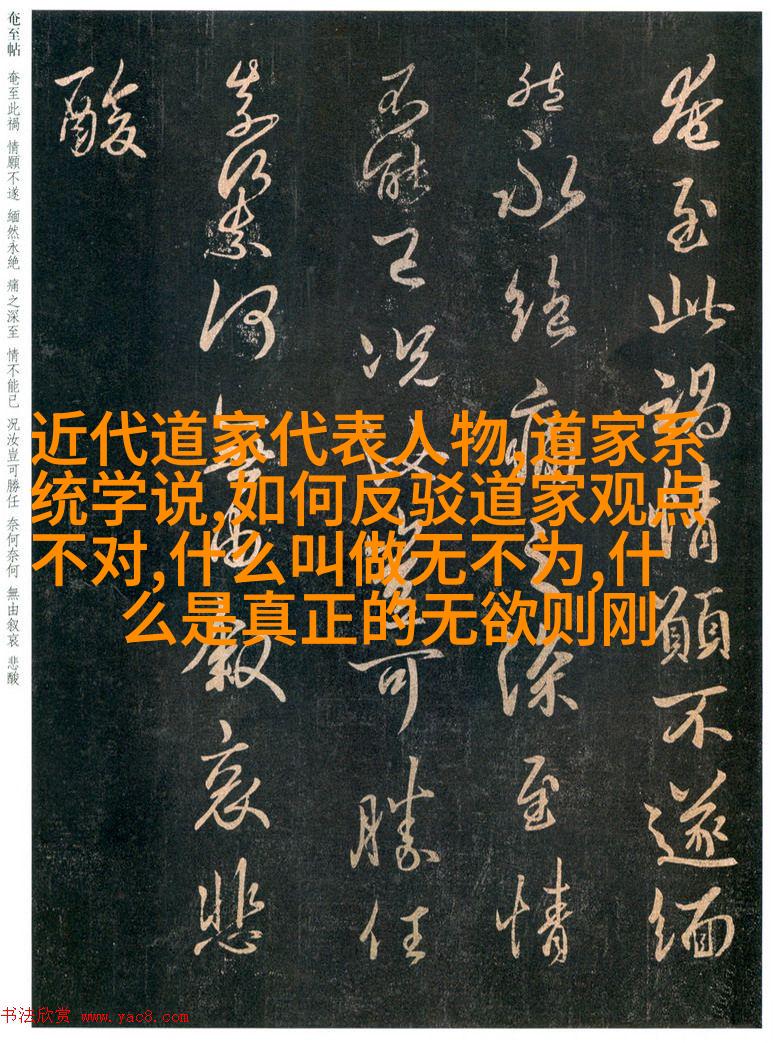 奄至帖 奄至此禍 情願不遂 緬然永絶 痛之深至 情不能已 况汝豈可勝任 奈何奈何 無由叙哀 悲酸
奄至此禍情願不遂緬
然永絶痛之深至情
不能已况汝豈可勝任
奈何奈何無由叙哀悲
酸
近代道家代表人物,道家系
统学说,如何反驳道家观点
不对,什么叫做无不为,什
么是真正的无欲则刚
书法欣赏 www.yac8.com